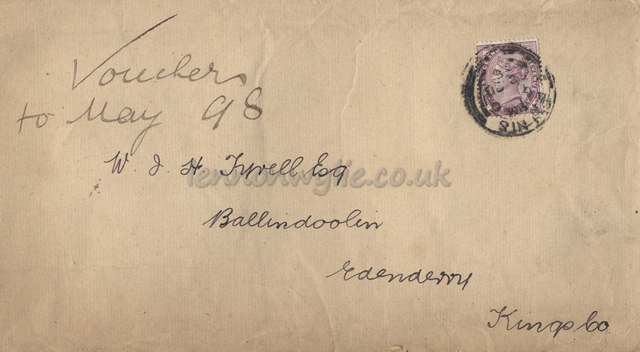 Vouchers
to May 98
W. J. H. Tyrrell Esq
lennonwylie.co.uk
Ballindoolin
Edenderry
Kings Co